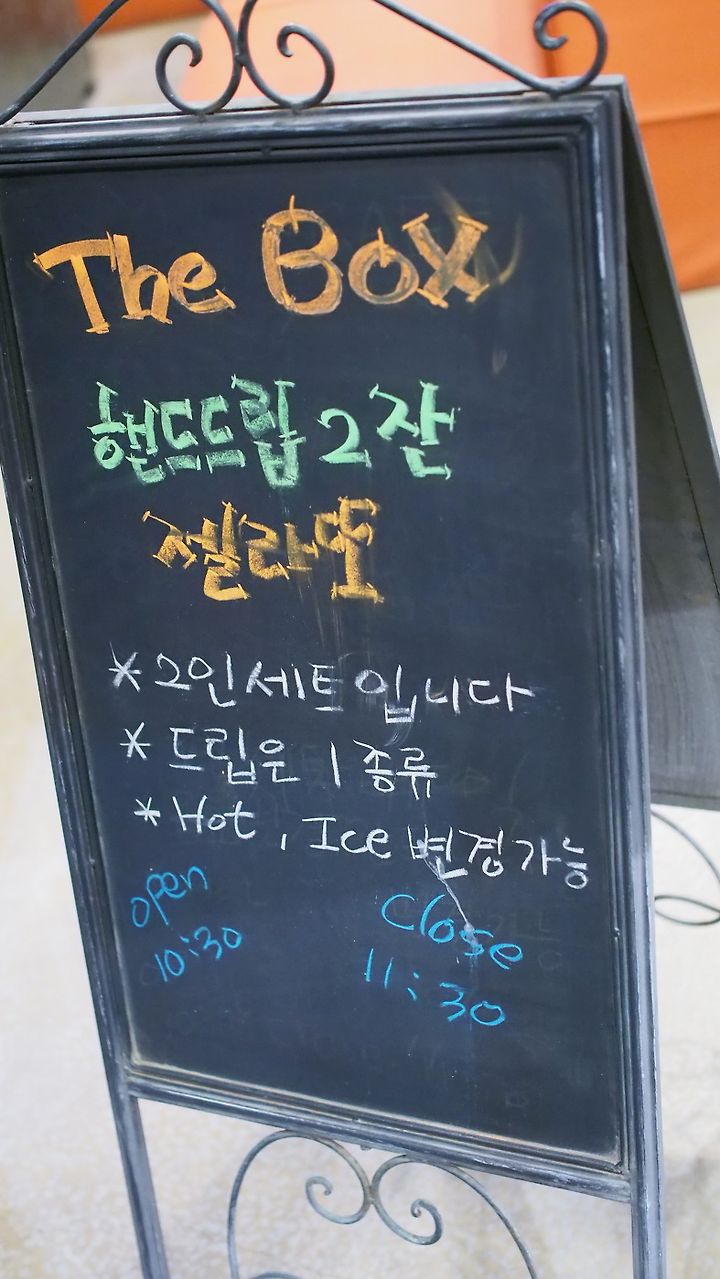 The Box
핸드드립 2잔
젤라또
* 2인 세트 입니다
* 드립은 1종류
* Hot, Ice 변경가능
open Close
10:30 11:30